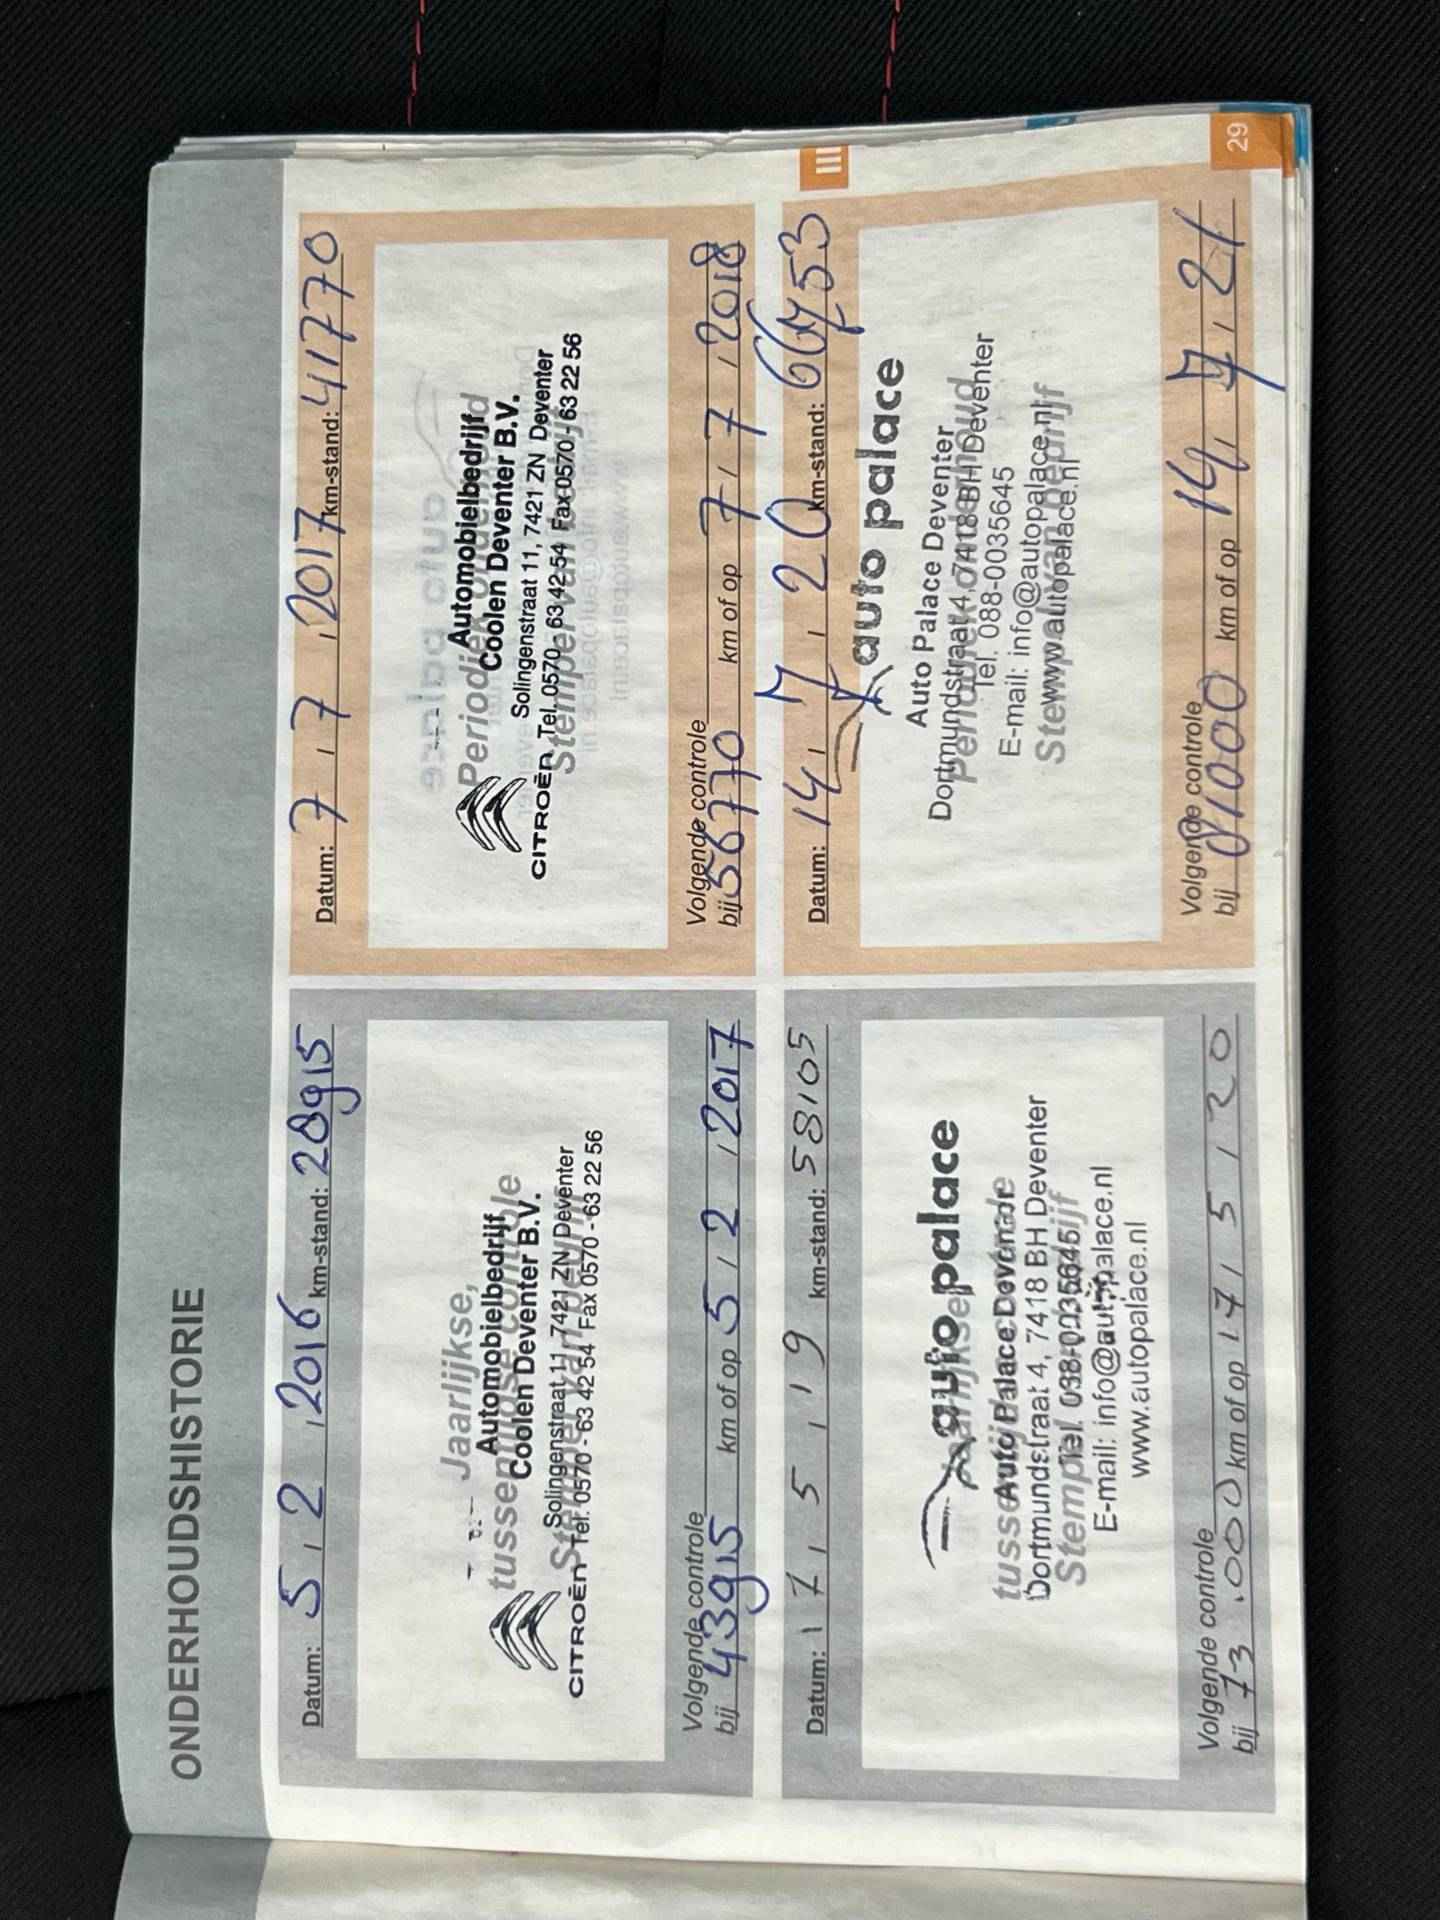 ONDERHOUDSHISTORIE
Datum: 5 , 2 , 2016 km-stand: 28915
Jaarlijkse,
tussentijdse controle
Stempel van bedrijf
Automobielbedrijf
Coolen Deventer B.V.
Solingenstraat 11, 7421 ZN Deventer
CITROËN Tel. 0570 - 63 42 54 Fax 0570 - 63 22 56
Volgende controle
bij 43915 km of op 5 , 2 , 2017
Datum: 7 , 7 , 2017 km-stand: 41770
Periodiek onderhoud
Stempel van bedrijf
Automobielbedrijf
Coolen Deventer B.V.
Solingenstraat 11, 7421 ZN Deventer
CITROËN Tel. 0570 - 63 42 54 Fax 0570 - 63 22 56
Volgende controle
bij 56770 km of op 7 , 7 , 2018
Datum: 17 , 5 , 19 km-stand: 58105
Jaarlijkse,
tussentijdse controle
Stempel van bedrijf
auto palace
Auto Palace Deventer
Dortmundstraat 4, 7418 BH Deventer
Tel. 088-0035645
E-mail: info@autopalace.nl
www.autopalace.nl
Volgende controle
bij 73.000 km of op 17 , 5 , 20
Datum: 14 , 7 , 20 km-stand: 66753
auto palace
Auto Palace Deventer
Dortmundstraat 4, 7418 BH Deventer
Periodiek onderhoud
Tel. 088-0035645
E-mail: info@autopalace.nl
Stempel van bedrijf
www.autopalace.nl
Volgende controle
bij 81000 km of op 14 , 7 , 21
III
29